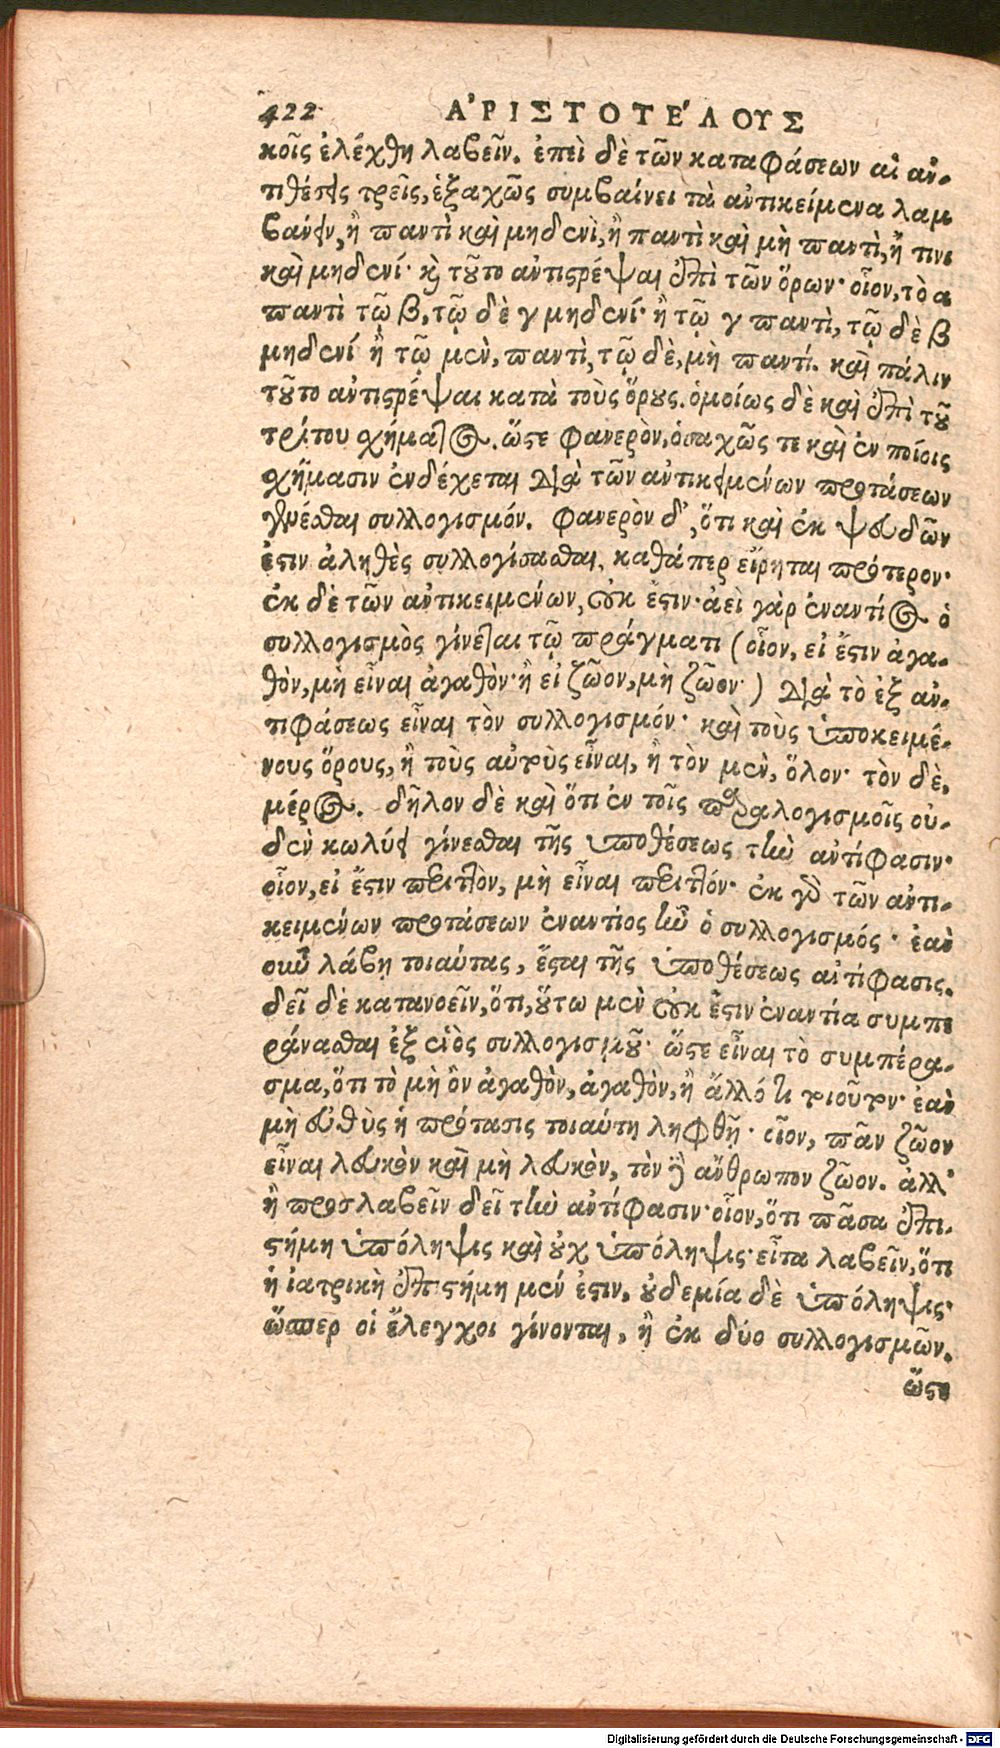 422 ἈΡΙΣΤΟΤΈΛΟΥΣ
κοῖς ἐλέχθη λαβεῖν. ἐπεὶ δὲ τῶν καταφάσεων αἱ ἀν-
τιθέσεις τρεῖς, ἑξαχῶς συμβαίνει τὰ ἀντικείμενα λαμ
βάνειν, ἢ παντὶ καὶ μηδενὶ, ἢ παντὶ καὶ μὴ παντὶ, ἢ τινὶ
καὶ μηδενί· καὶ τοῦτο ἀντιστρέψαι ἐπὶ τῶν ὅρων· οἷον, τὸ α
παντὶ τῷ β, τῷ δὲ γ μηδενί· ἢ τῷ γ παντὶ, τῷ δὲ β
μηδενί· ἢ τῷ μὲν, παντὶ, τῷ δὲ, μὴ παντί. καὶ πάλιν
τοῦτο ἀντιστρέψαι κατὰ τοὺς ὅρους. ὁμοίως δὲ καὶ ἐπὶ τοῦ
τρίτου σχήματος. ὥστε φανερὸν, ὁσαχῶς τε καὶ ἐν ποίοις
σχήμασιν ἐνδέχεται διὰ τῶν ἀντικειμένων προτάσεων
γενέσθαι συλλογισμόν. φανερὸν δ', ὅτι καὶ ἐκ ψευδῶν
ἐστιν ἀληθὲς συλλογίσασθαι, καθάπερ εἴρηται πρότερον·
ἐκ δὲ τῶν ἀντικειμένων, οὐκ ἔστιν· ἀεὶ γὰρ ἐναντίος ὁ
συλλογισμὸς γίνεται τῷ πράγματι (οἷον, εἰ ἔστιν ἀγα-
θὸν, μὴ εἶναι ἀγαθὸν· ἢ εἰ ζῷον, μὴ ζῷον·) διὰ τὸ ἐξ ἀν-
τιφάσεως εἶναι τὸν συλλογισμόν· καὶ τοὺς ὑποκειμέ-
νους ὅρους, ἢ τοὺς αὐτοὺς εἶναι, ἢ τὸν μὲν, ὅλον· τὸν δὲ,
μέρος. δῆλον δὲ καὶ ὅτι ἐν τοῖς παραλογισμοῖς οὐ-
δὲν κωλύει γίνεσθαι τῆς ὑποθέσεως τὴν ἀντίφασιν·
οἷον, εἰ ἔστιν περιττὸν, μὴ εἶναι περιττόν· ἐκ γὰρ τῶν ἀντι-
κειμένων προτάσεων ἐναντίος ἦν ὁ συλλογισμός· ἐὰν
οὖν λάβῃ τοιαύτας, ἔσται τῆς ὑποθέσεως ἀντίφασις.
δεῖ δὲ κατανοεῖν, ὅτι, οὕτω μὲν οὐκ ἔστιν ἐναντία συμπε
ράνασθαι ἐξ ἑνὸς συλλογισμοῦ· ὥστε εἶναι τὸ συμπέρα-
σμα, ὅτι τὸ μὴ ὂν ἀγαθὸν, ἀγαθὸν, ἢ ἄλλό τι τοιοῦτον· ἐὰν
μὴ εὐθὺς ἡ πρότασις τοιαύτη ληφθῇ· οἷον, πᾶν ζῷον
εἶναι λευκὸν καὶ μὴ λευκὸν, τὸν δὲ ἄνθρωπον ζῷον. ἀλλ'
ἢ προσλαβεῖν δεῖ τὴν ἀντίφασιν· οἷον, ὅτι πᾶσα ἐπι-
στήμη ὑπόληψις καὶ οὐχ ὑπόληψις· εἶτα λαβεῖν, ὅτι
ἡ ἰατρικὴ ἐπιστήμη μέν ἐστιν, οὐδεμία δὲ ὑπόληψις·
ὥσπερ οἱ ἔλεγχοι γίνονται, ἢ ἐκ δύο συλλογισμῶν.
ὥστε
Digitalisierung gefördert durch die Deutsche Forschungsgemeinschaft - DFG